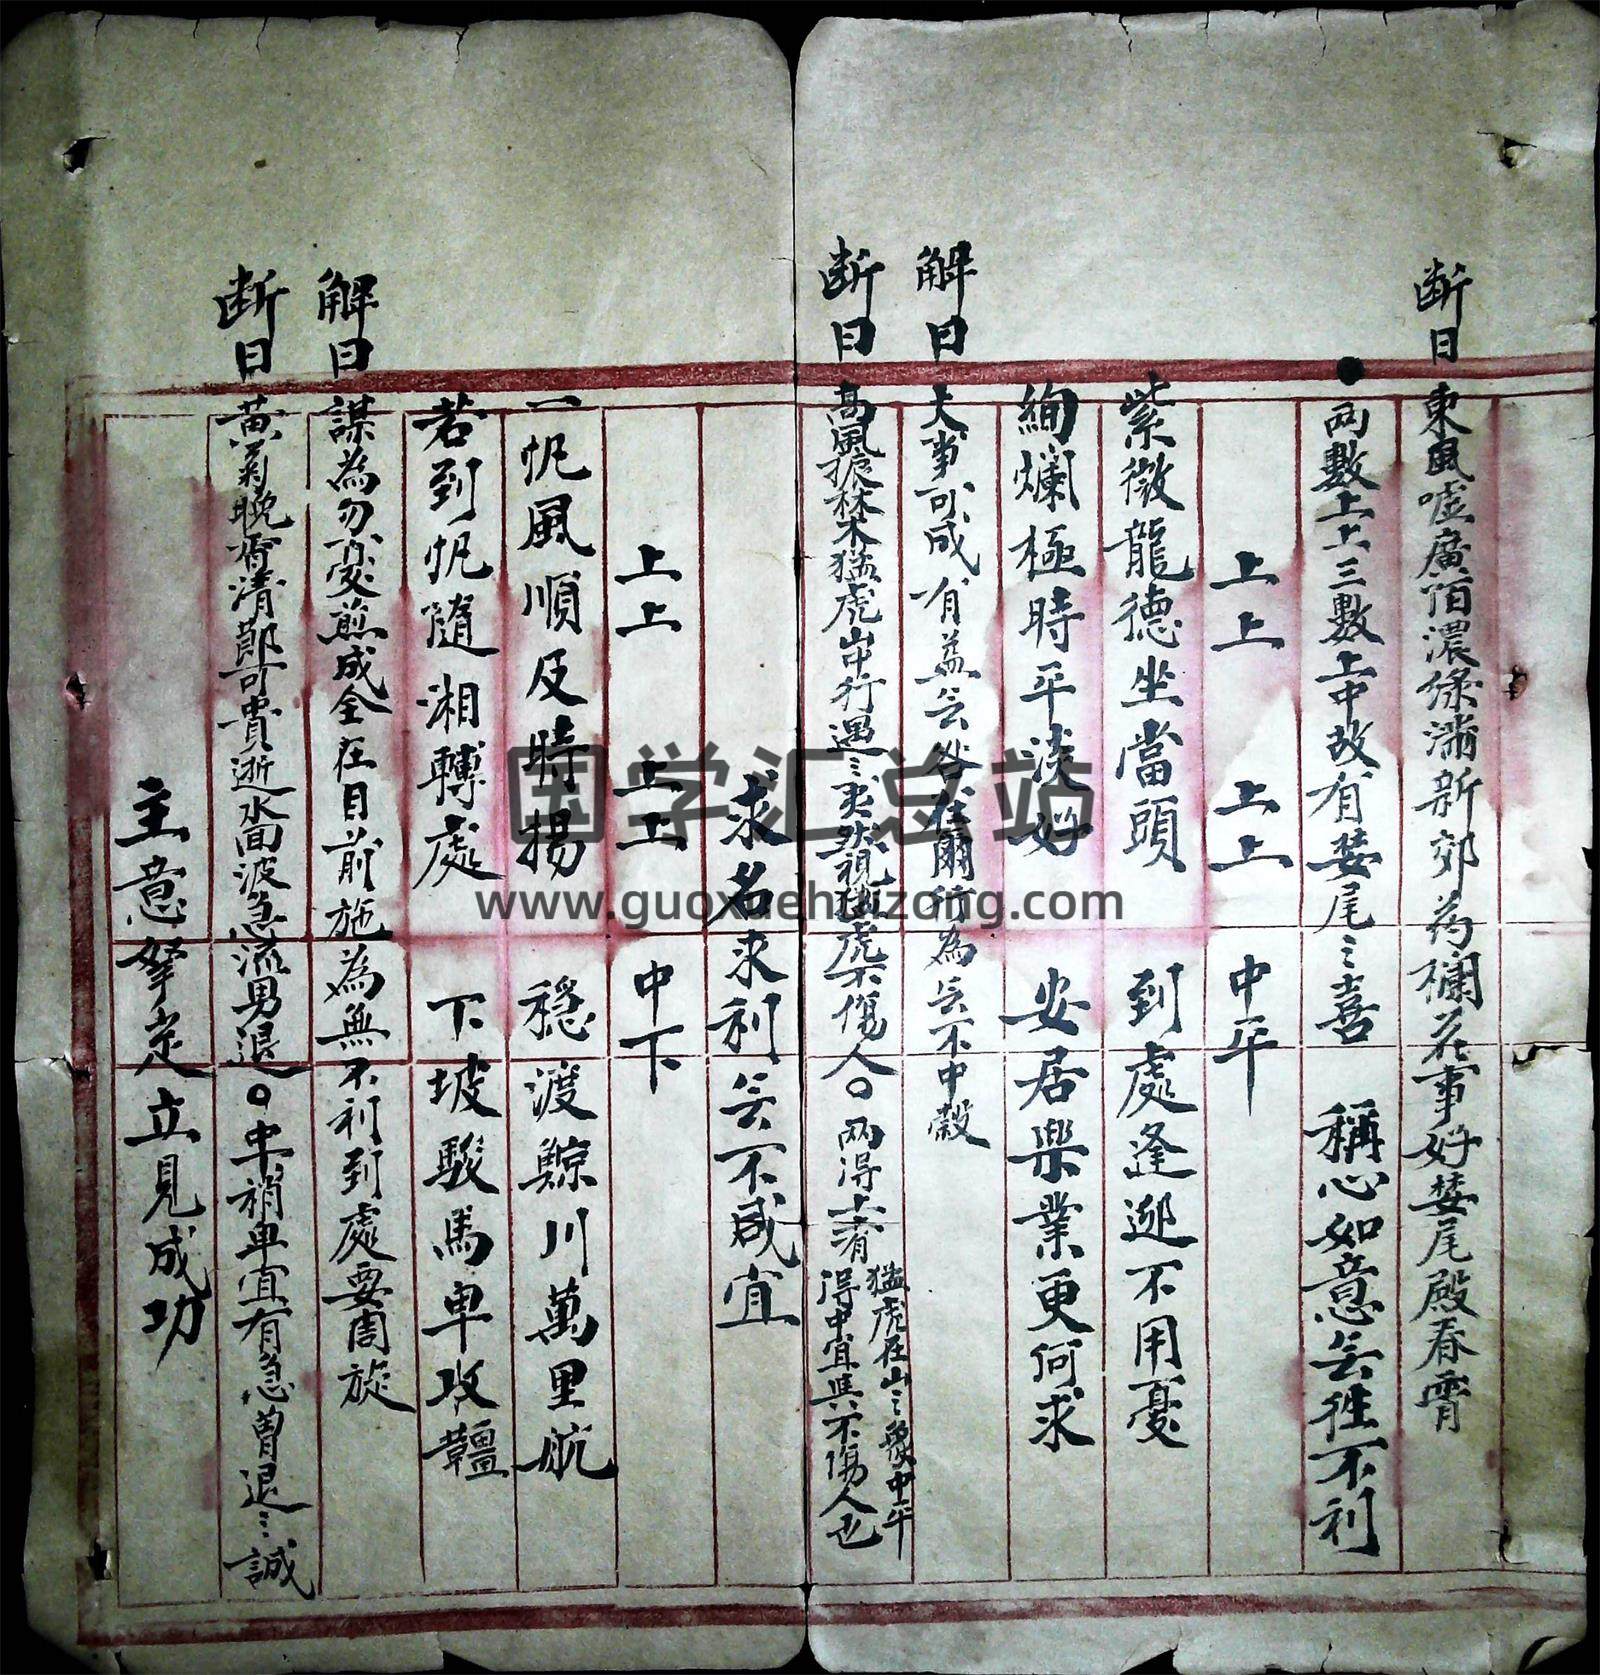 断曰東風噓廣陌濃緑滿新郊芍欄花事好婪尾殿春霄
两數上上三數上中故有婪尾之喜 稱心如意无徃不利
上上 上上 中平
紫微龍德坐當頭 到處逢迎不用憂
絢爛極時平淡好 安居樂業更何求
解曰大事可成有益无咎在爾行為无不中彀
断曰髙風振林木猛虎山中行遇之夷然視猛虎不傷人○两得上者猛虎在山之象中平得中宜其不傷人也
求名求利无不咸宜
上上 上上 中下
一帆風順及時揚 穏渡鯨川萬里航
若到帆隨湘轉處 下坡駿馬早收韁
解曰謀為勿憂煎成全在目前施為無不利到處要周旋
断曰黄菊晚香清節可貴逝水回波急流勇退○中稍早宜有急曽退之誡
主意拏定立見成功
国学汇总站
www.guoxuehuizong.com